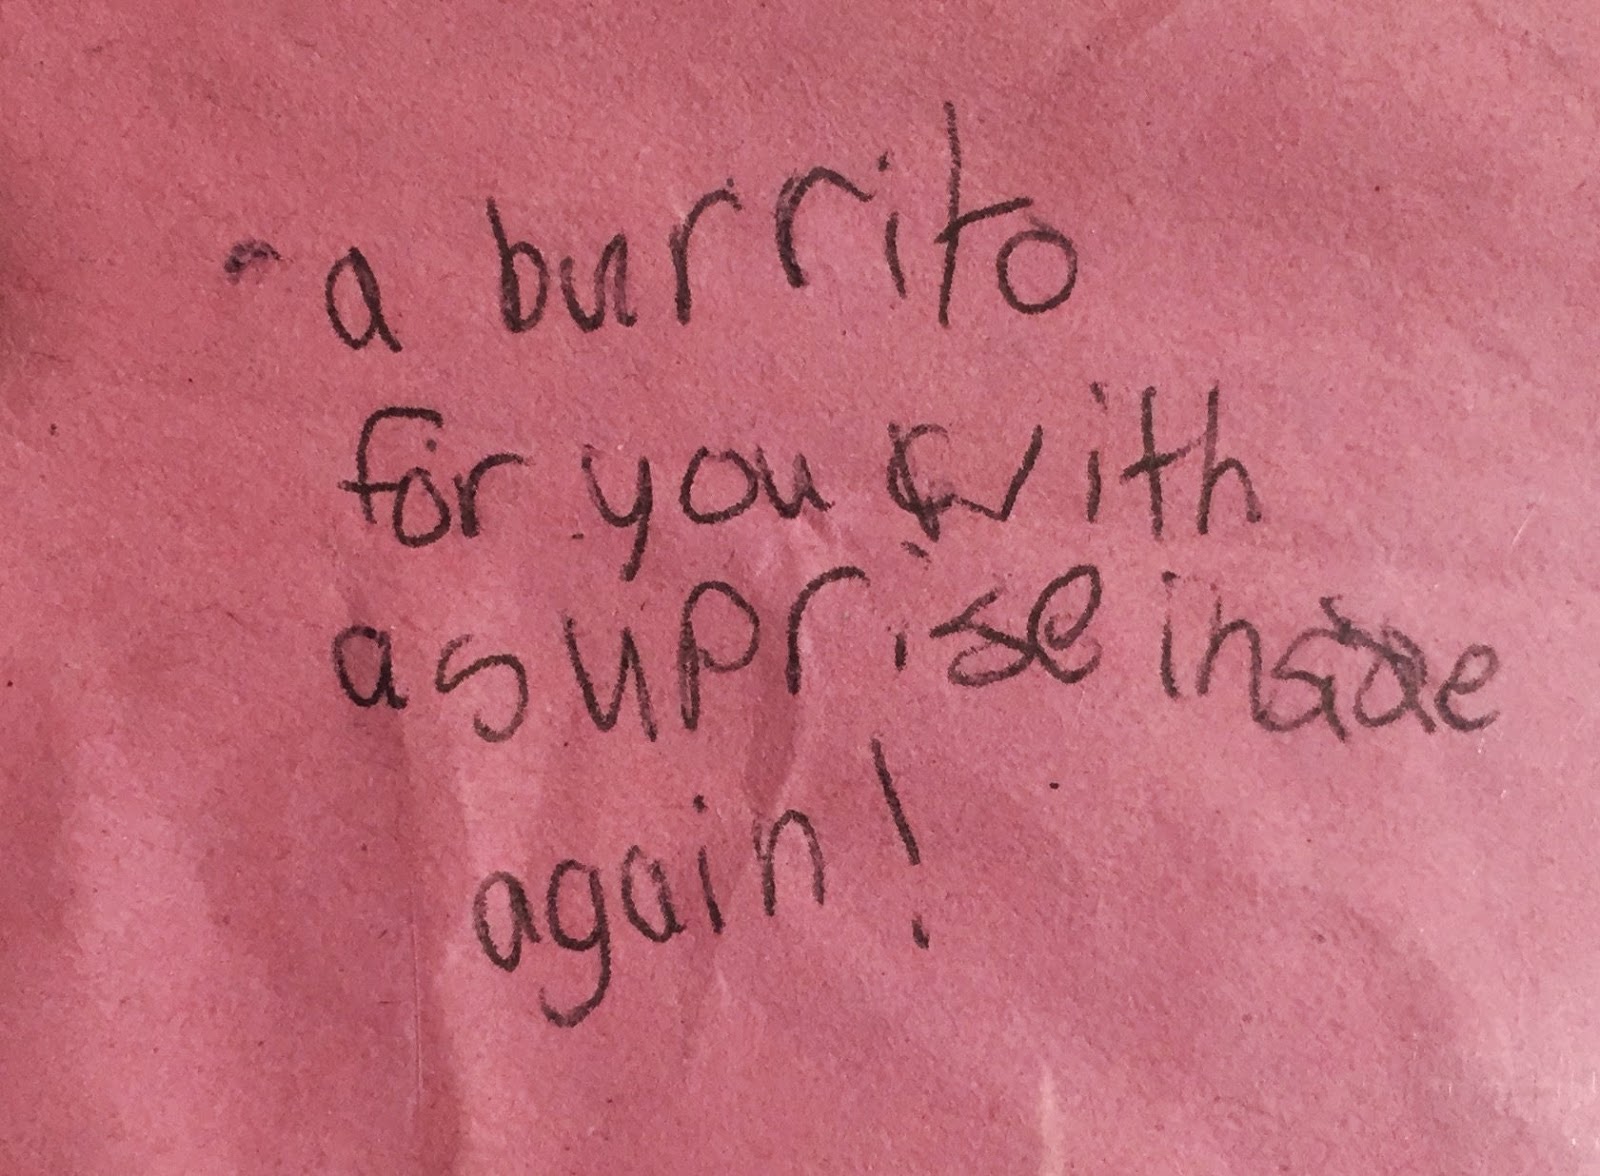 a burrito
for you with
a suprise inside
again!